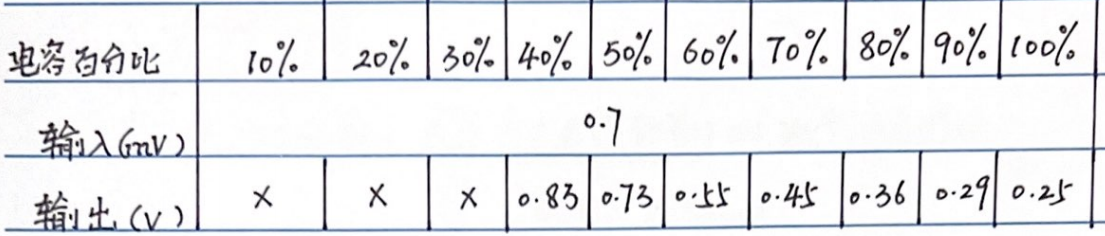 电容百分比 10% 20% 30% 40% 50% 60% 70% 80% 90% 100%
输入(mV) 0.7
输出(V) × × × 0.83 0.73 0.55 0.45 0.36 0.29 0.25